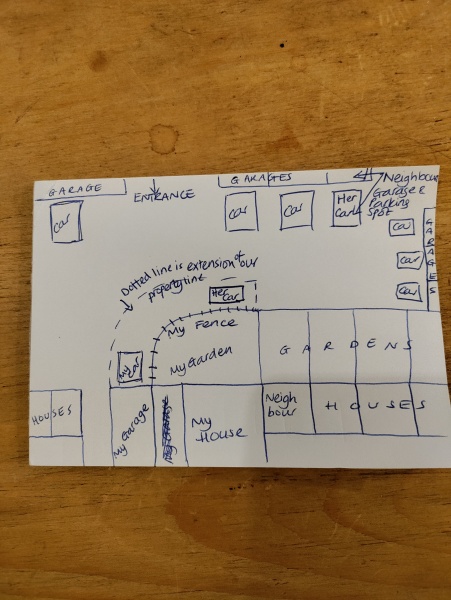 GARAGE
ENTRANCE
GARAGES
Neighbour
Garage &
Parking
Spot
Car
Car
Car
Her
Car
Car
Car
Car
GARAGES
Dotted line is extension of our
property line
Her
Car
My Fence
My Garden
My Car
GARDENS
HOUSES
My Garage
My
House
Neigh
bour
HOUSES